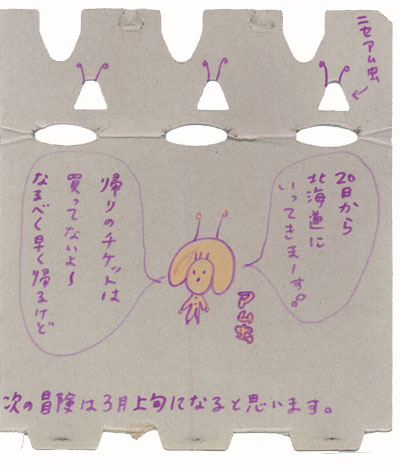 ニセアム虫
20日から
北海道に
いってきまーす。
帰りのチケットは
買ってないよ〜
なるべく早く帰るけど
アム虫
次の冒険は3月上旬になると思います。